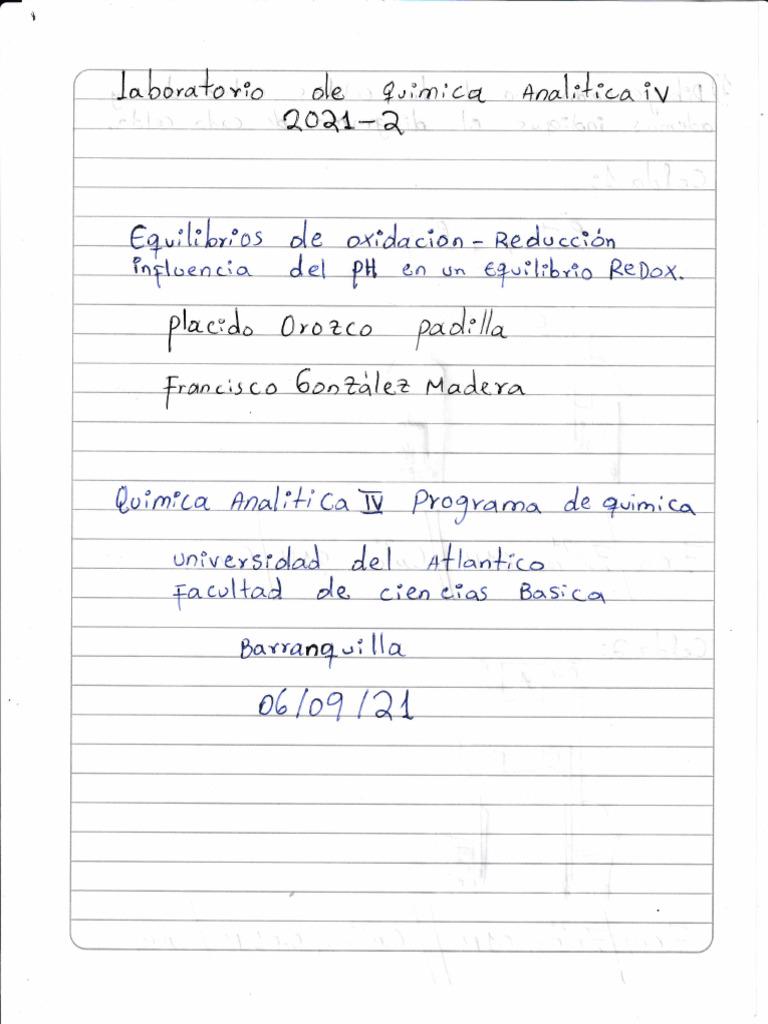 laboratorio de Quimica Analitica iV
2021-2
Equilibrios de oxidacion - Reducción
influencia del pH en un Equilibrio ReDox.
placido Orozco padilla
Francisco González Madera
Quimica Analitica IV Programa de quimica
universidad del Atlantico
Facultad de ciencias Basica
Barranquilla
06/09/21